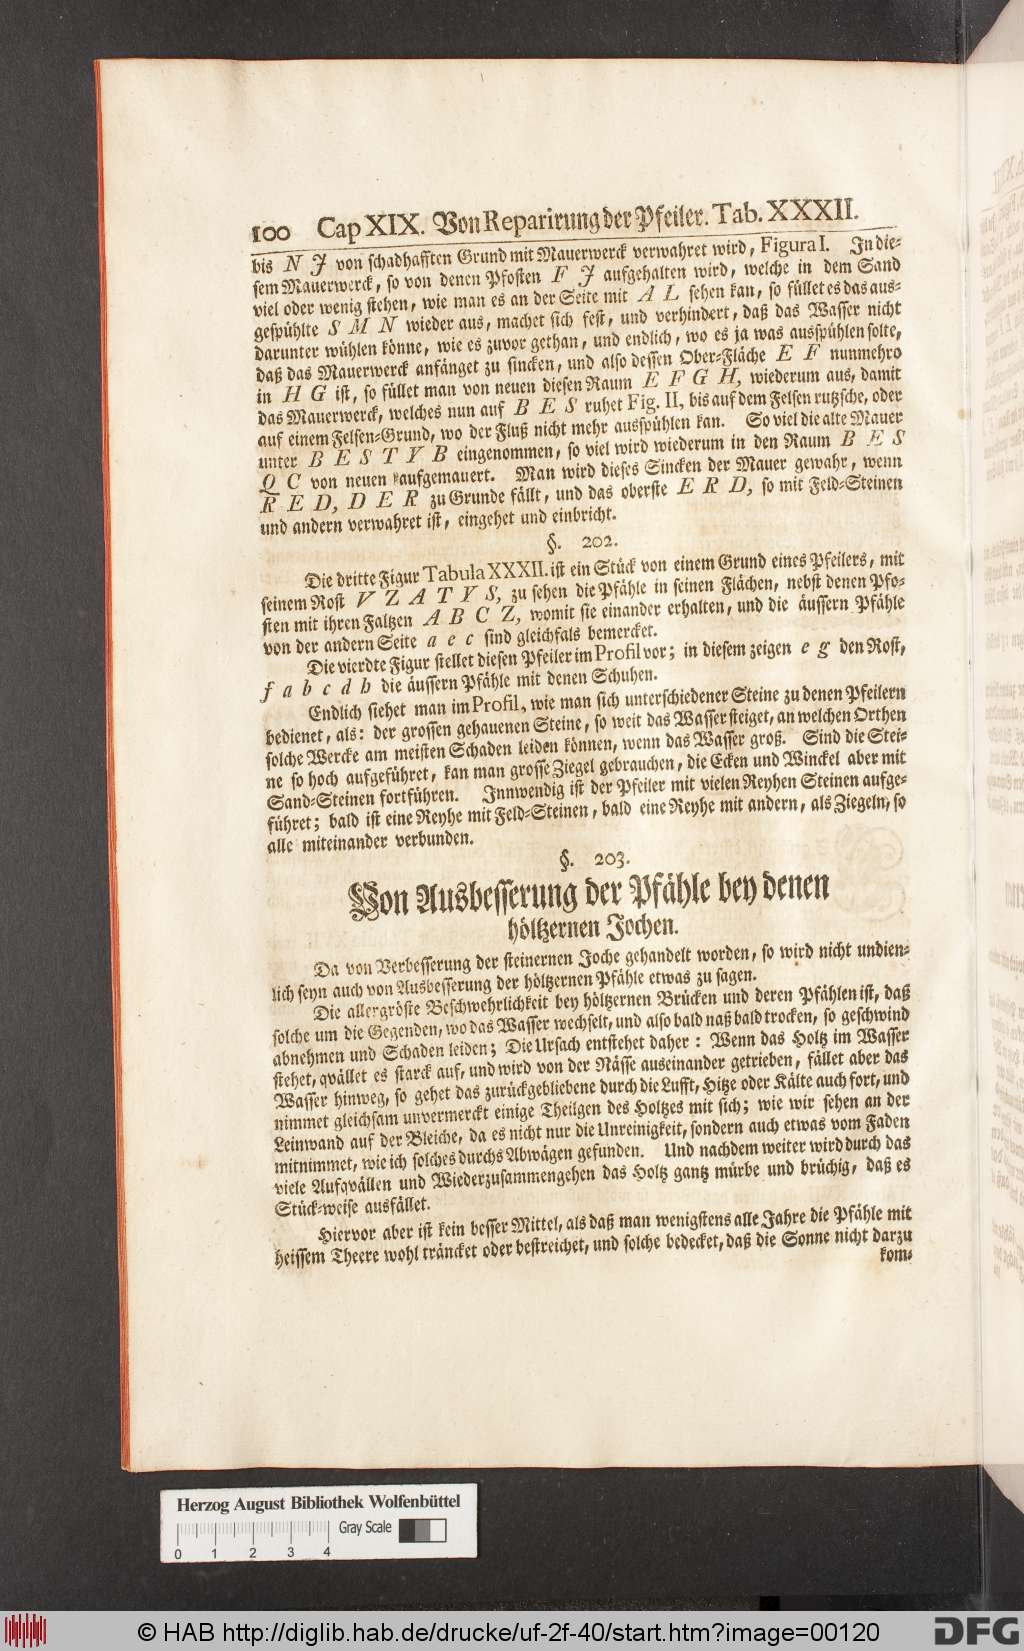 100 Cap XIX. Von Reparirung der Pfeiler. Tab. XXXII.
bis N J von schadhafften Grund mit Mauerwerck verwahret wird, Figura I. In die-
sem Mauerwerck, so von denen Pfosten F J aufgehalten wird, welche in dem Sand
viel oder wenig stehen, wie man es an der Seite mit A L sehen kan, so füllet es das aus-
gespühlte S M N wieder aus, machet sich fest, und verhindert, daß das Wasser nicht
darunter wühlen könne, wie es zuvor gethan, und endlich, wo es ja was ausspühlen solte,
daß das Mauerwerck anfänget zu sincken, und also dessen Ober-Fläche E F nunmehro
in H G ist, so füllet man von neuen diesen Raum E F G H, wiederum aus, damit
das Mauerwerck, welches nun auf B E S ruhet Fig. II, bis auf dem Felsen rutzsche, oder
auf einem Felsen-Grund, wo der Fluß nicht mehr ausspühlen kan. So viel die alte Mauer
unter B E S T Y B eingenommen, so viel wird wiederum in den Raum B E S
Q C von neuen aufgemauert. Man wird dieses Sincken der Mauer gewahr, wenn
R E D, D E R zu Grunde fällt, und das oberste E R D, so mit Feld-Steinen
und andern verwahret ist, eingehet und einbricht.
§. 202.
Die dritte Figur Tabula XXXII. ist ein Stück von einem Grund eines Pfeilers, mit
seinem Rost V Z A T Y S, zu sehen die Pfähle in seinen Flächen, nebst denen Pfo-
sten mit ihren Faltzen A B C Z, womit sie einander erhalten, und die äussern Pfähle
von der andern Seite a e c sind gleichfals bemercket.
Die vierdte Figur stellet diesen Pfeiler im Profil vor; in diesem zeigen e g den Rost,
f a b c d h die äussern Pfähle mit denen Schuhen.
Endlich siehet man im Profil, wie man sich unterschiedener Steine zu denen Pfeilern
bedienet, als: der grossen gehauenen Steine, so weit das Wasser steiget, an welchen Orthen
solche Wercke am meisten Schaden leiden können, wenn das Wasser groß. Sind die Stei-
ne so hoch aufgeführet, kan man grosse Ziegel gebrauchen, die Ecken und Winckel aber mit
Sand-Steinen fortführen. Innwendig ist der Pfeiler mit vielen Reyhen Steinen aufge-
führet; bald ist eine Reyhe mit Feld-Steinen, bald eine Reyhe mit andern, als Ziegeln, so
alle miteinander verbunden.
§. 203.
Von Ausbesserung der Pfähle bey denen
höltzernen Jochen.
Da von Verbesserung der steinernen Joche gehandelt worden, so wird nicht undien-
lich seyn auch von Ausbesserung der höltzernen Pfähle etwas zu sagen.
Die allergröste Beschwehrlichkeit bey höltzernen Brücken und deren Pfählen ist, daß
solche um die Gegenden, wo das Wasser wechselt, und also bald naß bald trocken, so geschwind
abnehmen und Schaden leiden; Die Ursach entstehet daher: Wenn das Holtz im Wasser
stehet, qvället es starck auf, und wird von der Nässe auseinander getrieben, fället aber das
Wasser hinweg, so gehet das zurückgebliebene durch die Lufft, Hitze oder Kälte auch fort, und
nimmet gleichsam unvermerckt einige Theilgen des Holtzes mit sich; wie wir sehen an der
Leinwand auf der Bleiche, da es nicht nur die Unreinigkeit, sondern auch etwas vom Faden
mitnimmet, wie ich solches durchs Abwägen gefunden. Und nachdem weiter wird durch das
viele Aufqvällen und Wiederzusammengehen das Holtz gantz mürbe und brüchig, daß es
Stück-weise ausfället.
Hiervor aber ist kein besser Mittel, als daß man wenigstens alle Jahre die Pfähle mit
heissem Theere wohl träncket oder bestreichet, und solche bedecket, daß die Sonne nicht darzu
kom-
Herzog August Bibliothek Wolfenbüttel
Gray Scale
0 1 2 3 4
© HAB http://diglib.hab.de/drucke/uf-2f-40/start.htm?image=00120
DFG